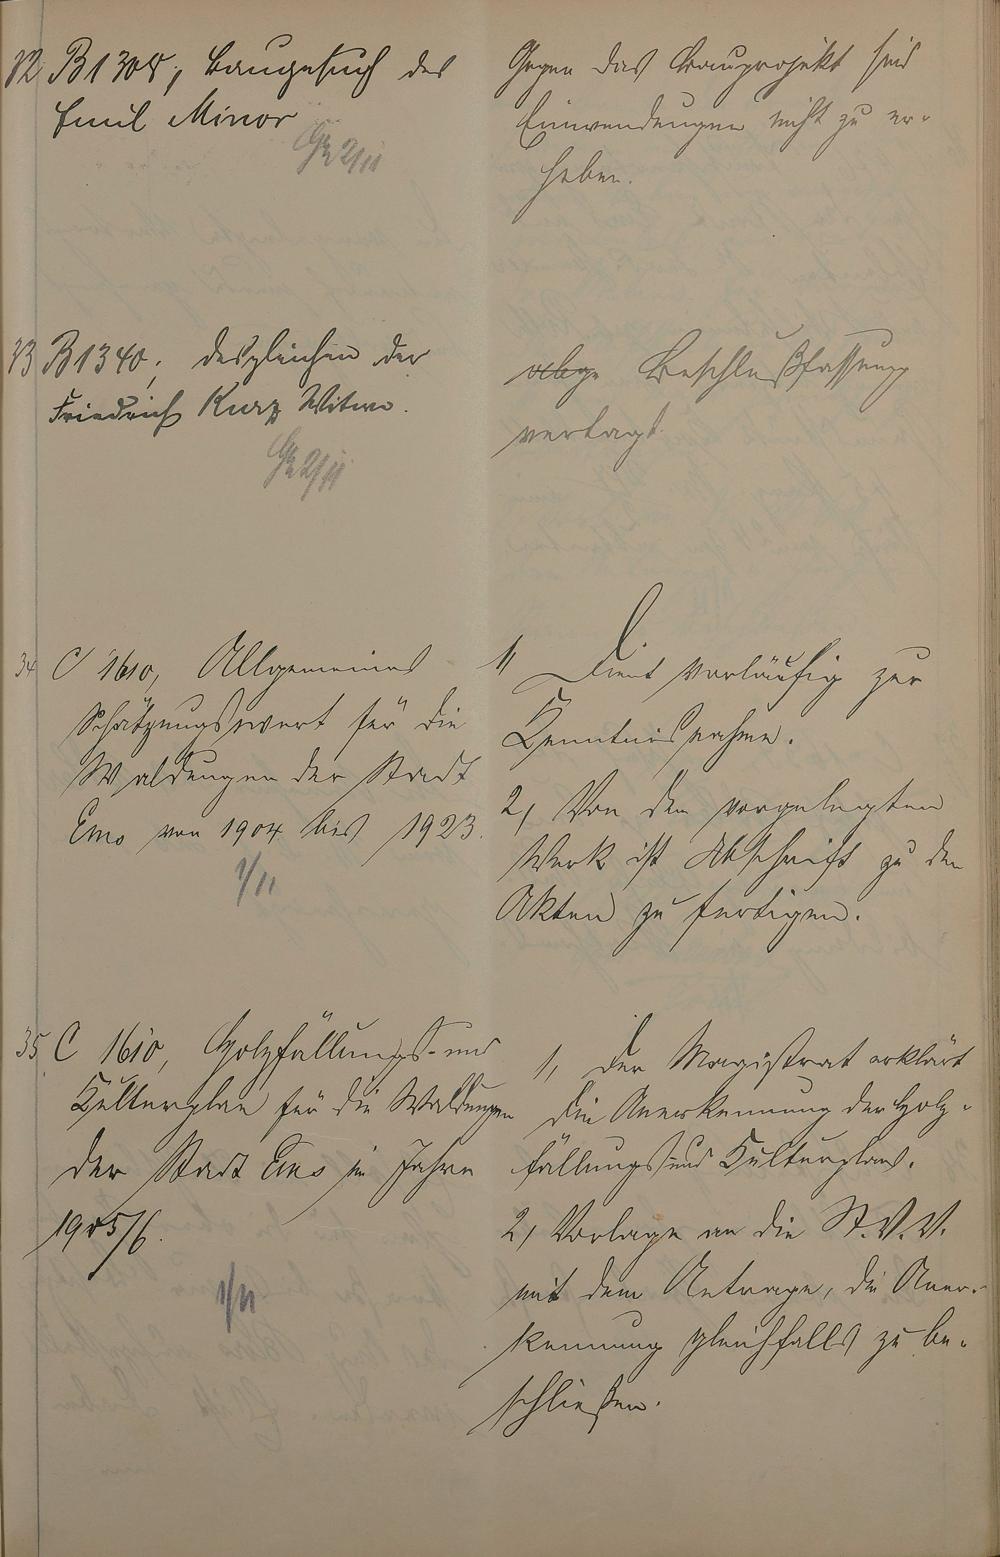 32 B 1305, Baugesuch des
Emil Minor
2/11
Gegen das Bauprojekt sind
Einwendungen nicht zu er-
heben.
33 B 1340, desgleichen der
Friedrich Kurz Witwe.
2/11
Beschlußfassung
vertagt.
34 C 1610, Allgemeines
Schätzungswert für die
Waldungen der Stadt
Ems von 1904 bis 1923.
1/11
1, Dient vorläufig zur
Kenntnisnahme.
2, Von dem vorgelegten
Werk ist Abschrift zu den
Akten zu fertigen.
35 C 1610, Holzfällungs- und
Kulturplan für die Waldungen
der Stadt Ems im Jahre
1905/6.
1/11
1, Der Magistrat erklärt
die Anerkennung der Holz-
fällungs und Kulturplans.
2, Vorlage an die St.V.V.
mit dem Antrage, die Aner-
kennung gleichfalls zu be-
schließen.